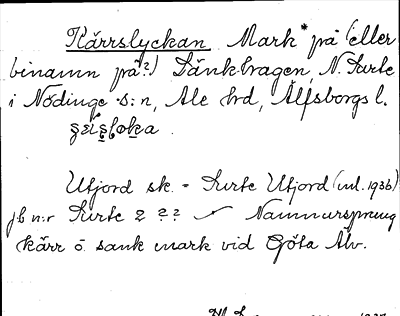 Kärrslyckan Mark* på (eller
binamn på?) Sänkhagen, N. Surte
i Nödinge s:n, Ale hrd, Älfsborgs l.
Utjord sk. - Surte Utjord (inl. 1936)
jb n:r Surte 2 ?? Namnursprung
kärr o. sank mark vid Göta Älv.